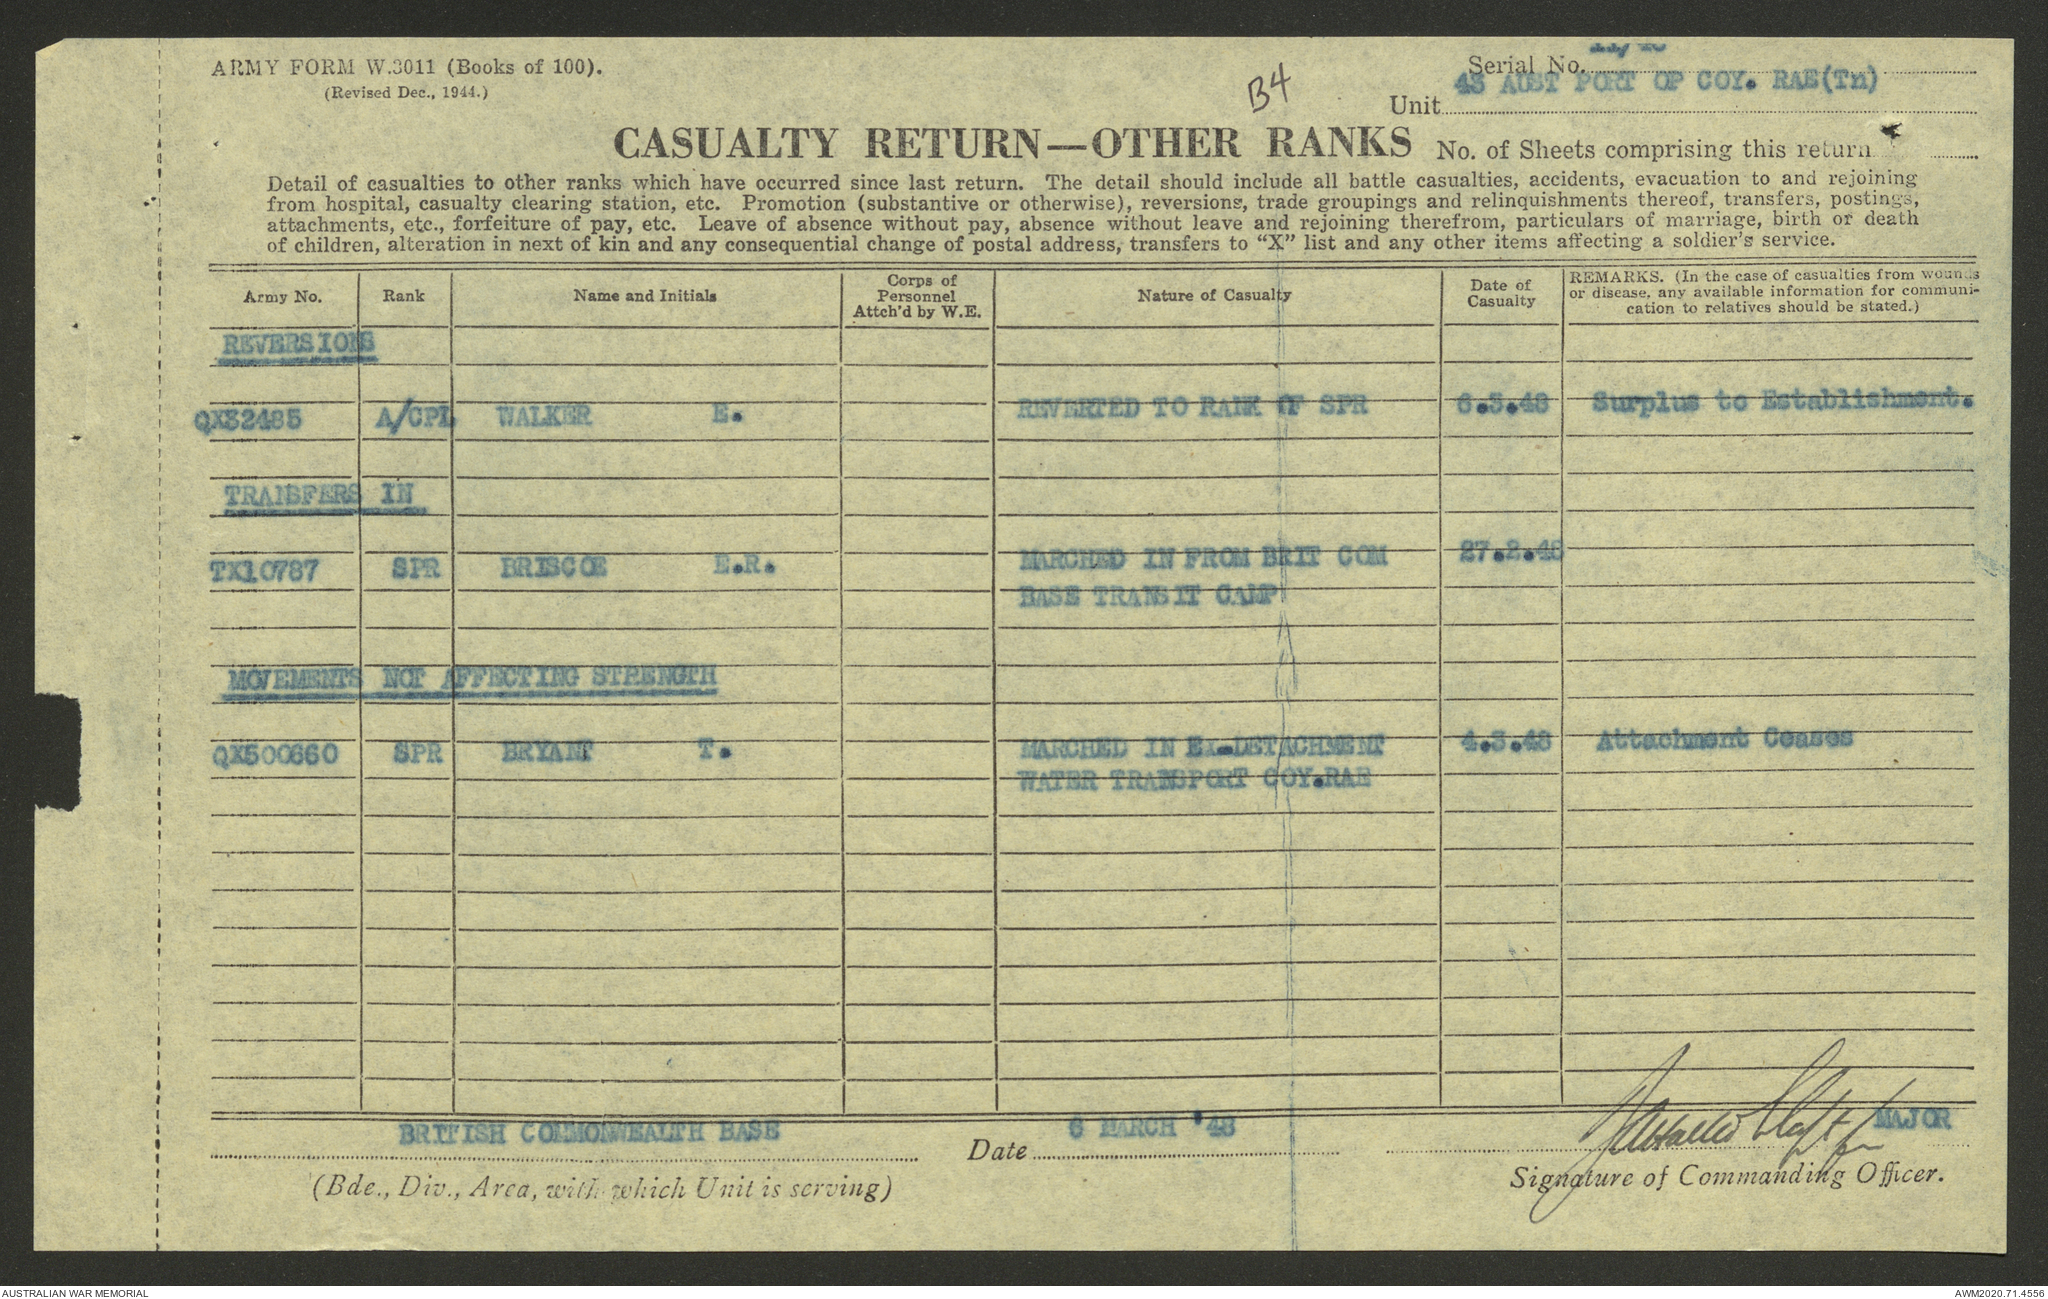 ARMY FORM W.3011 (Books of 100).
(Revised Dec., 1944.)
B4
Serial No. 11/48
Unit 43 AUST PORT OP COY. RAE(Tn)
CASUALTY RETURN—OTHER RANKS
No. of Sheets comprising this return
Detail of casualties to other ranks which have occurred since last return. The detail should include all battle casualties, accidents, evacuation to and rejoining
from hospital, casualty clearing station, etc. Promotion (substantive or otherwise), reversions, trade groupings and relinquishments thereof, transfers, postings,
attachments, etc., forfeiture of pay, etc. Leave of absence without pay, absence without leave and rejoining therefrom, particulars of marriage, birth or death
of children, alteration in next of kin and any consequential change of postal address, transfers to "X" list and any other items affecting a soldier's service.
Army No. Rank Name and Initials Corps of Personnel Attch'd by W.E. Nature of Casualty Date of Casualty REMARKS. (In the case of casualties from wounds
or disease, any available information for communi-
cation to relatives should be stated.)
REVERSIONS
QX32485 A/CPL WALKER E. REVERTED TO RANK OF SPR 6.3.48 Surplus to Establishment.
TRANSFERS IN
TX10787 SPR BRISCOE E.R. MARCHED IN FROM BRIT COM 27.2.48
BASE TRANSIT CAMP
MOVEMENTS NOT AFFECTING STRENGTH
QX500660 SPR BRYANT T. MARCHED IN EX.DETACHMENT 4.3.48 Attachment Ceases
WATER TRANSPORT COY.RAE
BRITISH COMMONWEALTH BASE
Date 6 MARCH '48
MAJOR
(Bde., Div., Area, with which Unit is serving)
Signature of Commanding Officer.
AUSTRALIAN WAR MEMORIAL
AWM2020.71.4556